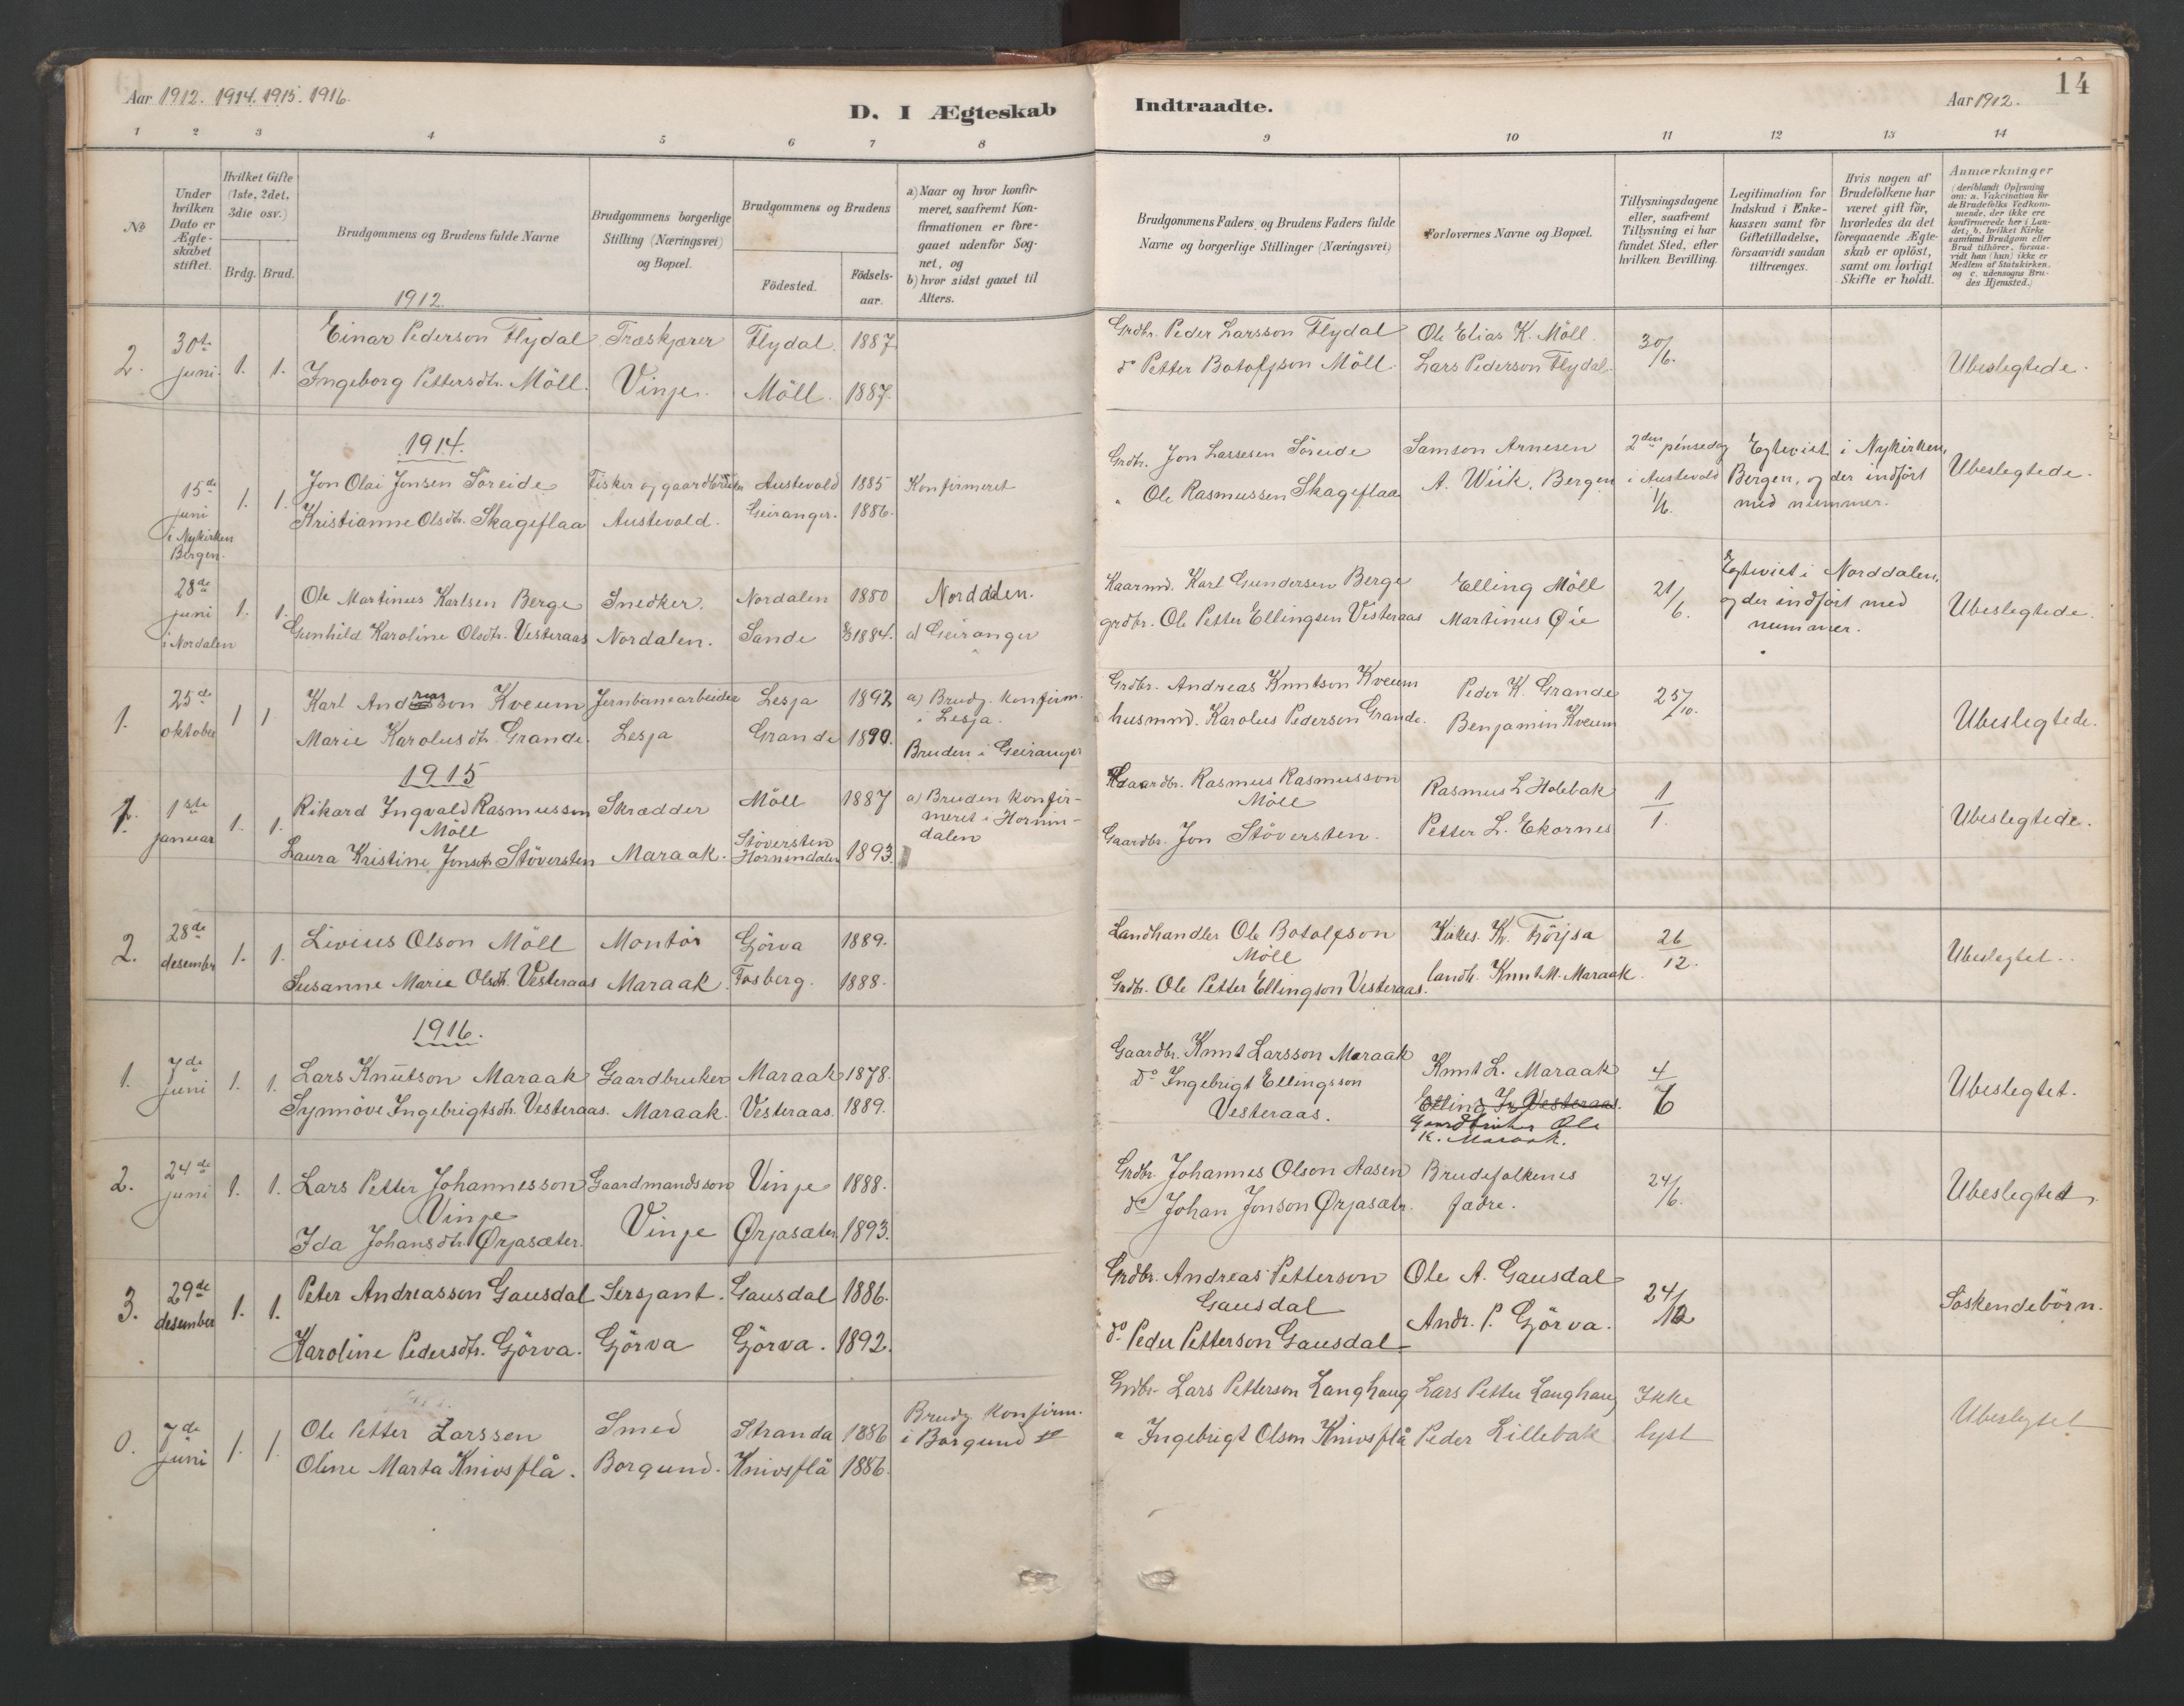 Aar 1912. 1914. 1915. 1916.
D. I Ægteskab
Indtraadte.
Aar 1912.
14
1 2 3 4 5 6 7 8 9 10 11 12 13 14
No
Under hvilken Dato er Ægteskabet stiftet.
Hvilket Gifte (1ste, 2det, 3die osv.)
Brdg. Brud.
Brudgommens og Brudens fulde Navne
Brudgommens borgerlige Stilling (Næringsvei) og Bopæl.
Brudgommens og Brudens
Födested.
Födselsaar.
a) Naar og hvor konfirmeret, saafremt Konfirmationen er foregaaet udenfor Sognet, og
b) hvor sidst gaaet til Alters.
Brudgommens Faders og Brudens Faders fulde Navne og borgerlige Stillinger (Næringsvei)
Forlovernes Navne og Bopæl.
Tillysningsdagene eller, saafremt Tillysning ei har fundet Sted, efter hvilken Bevilling.
Legitimation for Indskud i Enkekassen samt for Giftetilladelse, forsaavidt saadan tiltrænges.
Hvis nogen af Brudefolkene har været gift för, hvorledes da det foregaaende Ægteskab er oplöst, samt om lovligt Skifte er holdt.
Anmærkninger
(deriblandt Oplysning om: a. Vakcination for de Brudefolks Vedkommende, der ikke ere konfirmerede her i Landet; b. hvilket Kirkesamfund Brudgom eller Brud tilhörer, forsaavidt han (hun) ikke er Medlem af Statskirken, og c. udensogns Brudes Hjemsted.)
1912.
2. 30te juni. 1. 1. Einar Pederson Flydal Træskjærer Flydal. 1887 Grdbr. Peder Larsson Flydal Ole Elias K. Möll. 30/6. Ubeslegtede.
Ingeborg Pettersdtr. Möll. Vinje. Möll. 1887. do Petter Botolfson Möll. Lars Pederson Flydal.
1914.
15de juni i Nykirken Bergen. 1. 1. Jon Olai Jonsen Söreide Fisker og gaardbruker Austevold 1885 Konfirmeret Grdbr. Jon Lassesen Söreide Samson Arnesen 2den pinsedag i Austevold 1/6. Egteviet i Nykirken, Bergen, og der indfört med nummer. Ubeslegtede.
Kristianne Olsdtr. Skageflaa Austevold. Geiranger. 1886. " Ole Rasmussen Skageflaa A. Wiik, Bergen
28de juni i Nordalen 1. 1. Ole Martinus Karlsen Berge Snedker. Nordalen 1880 Norddalen. Kaarmd. Karl Gundersen Berge Elling Möll 21/6. Egteviet i Norddalen, og der indfört med nummer. Ubeslegtede.
Gunhild Karoline Olsdtr. Vesteraas Nordalen. Sande 1884. a) Geiranger grdbr. Ole Petter Ellingsen Vesteraas Martinus Øie
1. 25de oktober 1 1. Karl Andreasson Kveum Jernbanearbeider Lesja 1892 a) Brudg. konfirm. i Lesja. Grdbr. Andreas Knutson Kveum Peder K. Grande 25/10. Ubeslegtede.
Marie Karolusdtr. Grande. Lesja Grande 1890. Bruden i Geiranger husmnd. Karolus Pederson Grande. Benjamin Kveum
1915
1. 1ste januar 1. 1. Rikard Ingvald Rasmussen Möll Skrædder Möll 1887 a) Bruden konfirmeret i Hornindalen Gaardbr. Rasmus Rasmusson Möll Rasmus L Holebak 1/1. Ubeslegtede.
Laura Kristine Jonsdtr. Stöversten Maraak. Stöversten Hornindalen 1893. Gaardbr. Jon Stöversten. Petter L. Ekornes
2. 28de desember 1. 1. Livius Olson Möll Montör Gjörva 1889. Landhandler Ole Botolfson Möll Kirkes. K. 26/12. Ubeslegtet.
Susanne Marie Olsdtr. Vesteraas Maraak. Fosberg. 1888. Grdbr. Ole Petter Ellingson Vesteraas. landh. Knut M. Maraak.
1916.
1. 7de juni 1. 1. Lars Knutson Maraak Gaardbruker Maraak 1878. Gaardbr. Knut Larsson Maraak Knut L. Maraak 4/6 Ubeslegtet.
Synnöve Ingebrigtsdtr. Vesteraas. Maraak. Vesteraas. 1889. do Ingebrigt Ellingsson Vesteraas. Elling I. Vesteraas. Gaardbruker Ole K. Maraak.
2. 24de juni 1. 1. Lars Petter Johannesson Vinje Gaardmandsson Vinje 1888. Grdbr. Johannes Olson Aasen Brudefolkenes fædre. 24/6. Ubeslegtet.
Ida Johansdtr. Ørjasæter. Vinje Ørjasæter 1893. do Johan Jonson Ørjasætr.
3. 29de desember 1. 1. Peter Andreasson Gausdal Sersjant. Gausdal 1886. Grdbr. Andreas Petterson Gausdal Ole A. Gausdal 24/12 Söskendebörn.
Karoline Pedersdtr. Gjörva. Gjörva Gjörva. 1892. do Peder Petterson Gausdal Andr. P. Gjörva.
0. 7de juni 1. 1. Ole Petter Larssen Smed Stranda 1886 Brudg. konfirm. i Borgund Grdbr. Lars Petterson Langhaug Lars Petter Langhaug Ikke lyst Ubeslegtet
Oline Marta Knivsflå. Borgund. Knivsflå 1886. " Ingebrigt Olsen Knivsflå Peder Lillebak